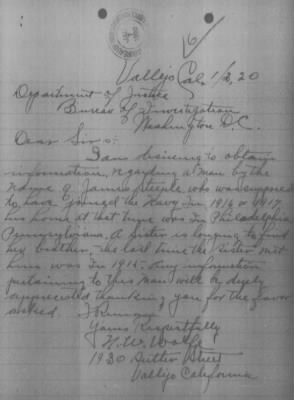 Vallejo Cal. 1/2, 20
Department of Justice
Bureau of Investigation
Washington D.C.
Dear Sir:
I am desiring to obtain
information, regarding a man by the
name of James Steele, who was supposed
to have joined the Navy in 1916 or 1917
his home at that time was in Philadelphia
Pennsylvania. A sister is longing to find
her brother, the last time the sister met
him was in 1915. Any information
pertaining to this man will be
appreciated thanking you for the favor
asked. I Remain
Yours Respectfully
H. W. Wolfe
1930 Sutter Street
Vallejo California